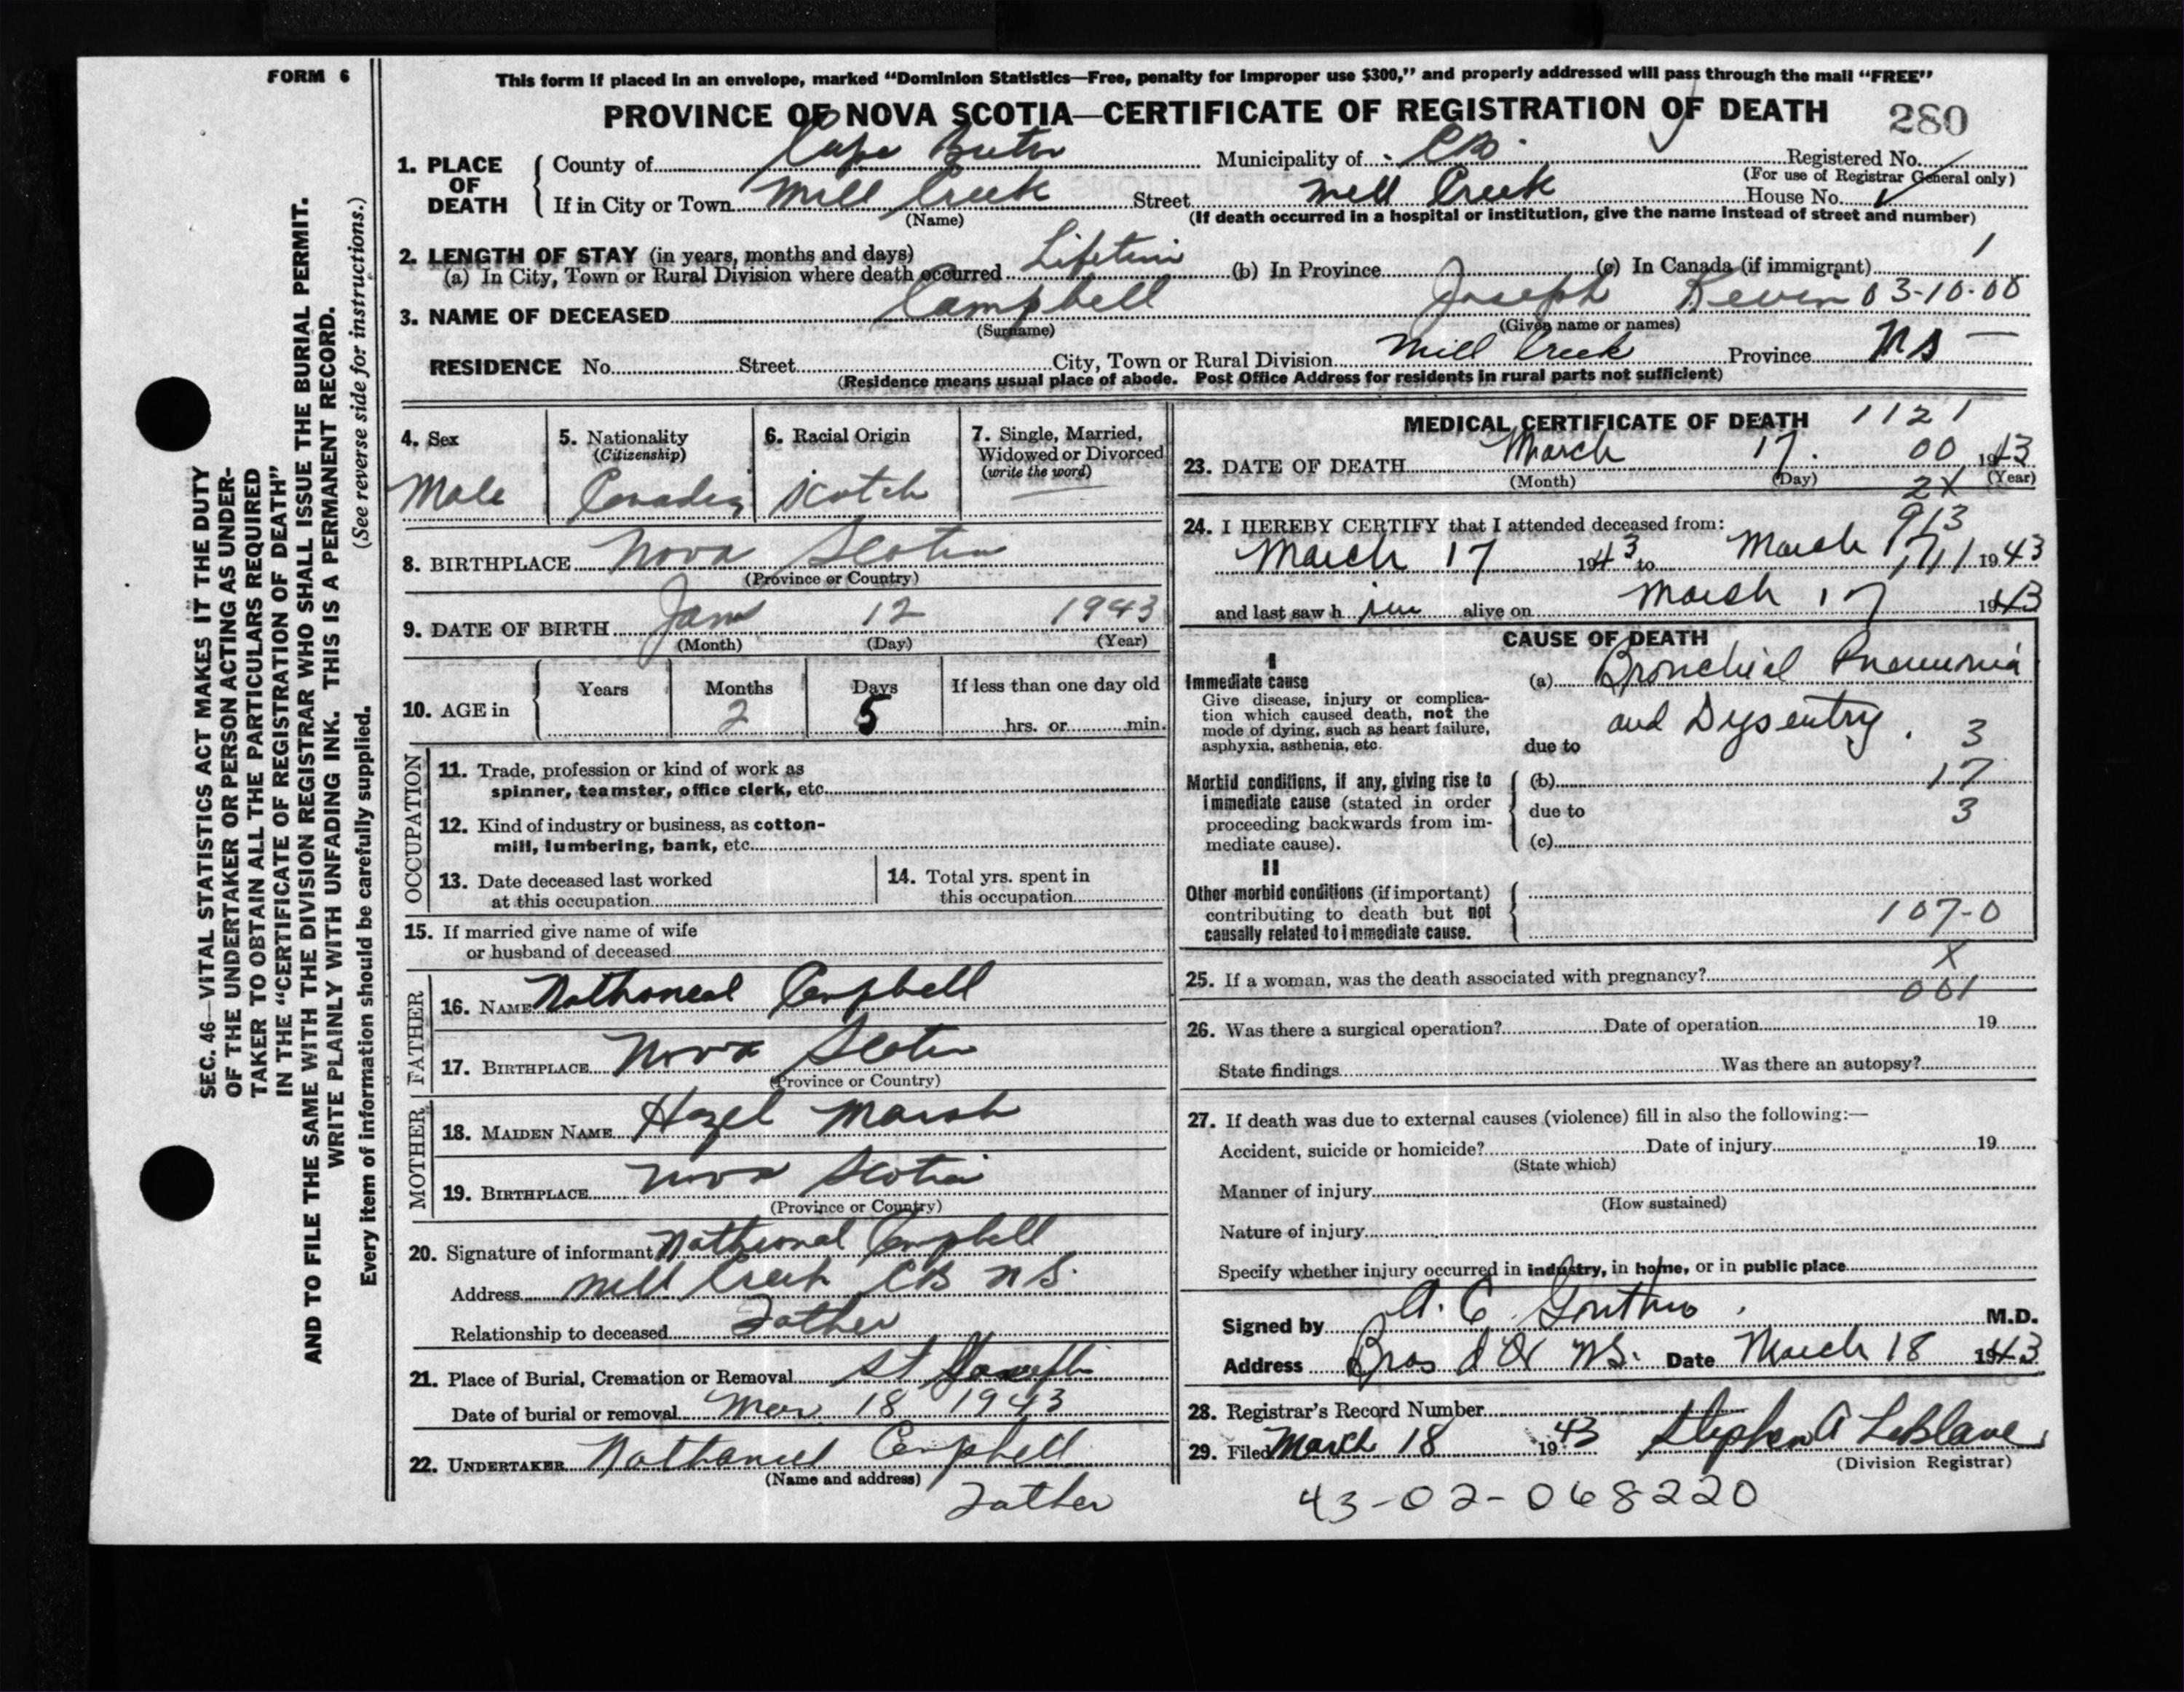 FORM 6
This form if placed in an envelope, marked “Dominion Statistics—Free, penalty for improper use $300,” and properly addressed will pass through the mail “FREE”
PROVINCE OF NOVA SCOTIA—CERTIFICATE OF REGISTRATION OF DEATH
280
1. PLACE OF DEATH
County of Cape Breton Municipality of C.B. Registered No.
(For use of Registrar General only)
If in City or Town Mill Creek Street Mill Creek House No.
(Name) (If death occurred in a hospital or institution, give the name instead of street and number)
2. LENGTH OF STAY (in years, months and days)
(a) In City, Town or Rural Division where death occurred Lifetim (b) In Province (c) In Canada (if immigrant) 1
3. NAME OF DECEASED Campbell Joseph Kevin 03-10-00
(Surname) (Given name or names)
RESIDENCE No. Street City, Town or Rural Division Mill Creek Province NS
(Residence means usual place of abode. Post Office Address for residents in rural parts not sufficient)
4. Sex
Male
5. Nationality
(Citizenship)
Canadian
6. Racial Origin
Scotch
7. Single, Married,
Widowed or Divorced
(write the word)
8. BIRTHPLACE Nova Scotia
(Province or Country)
9. DATE OF BIRTH Jan 12 1943
(Month) (Day) (Year)
10. AGE in
Years Months Days If less than one day old
2 5 hrs. or min.
OCCUPATION
11. Trade, profession or kind of work as
spinner, teamster, office clerk, etc.
12. Kind of industry or business, as cotton-
mill, lumbering, bank, etc.
13. Date deceased last worked
at this occupation
14. Total yrs. spent in
this occupation
15. If married give name of wife
or husband of deceased
FATHER
16. NAME Nathaneal Campbell
17. BIRTHPLACE Nova Scotia
(Province or Country)
MOTHER
18. MAIDEN NAME Hazel Marsh
19. BIRTHPLACE Nova Scotia
(Province or Country)
20. Signature of informant Campbell
Address Mill Creek CB NS.
Relationship to deceased Father
21. Place of Burial, Cremation or Removal St Joseph
Date of burial or removal Mar 18 1943
22. UNDERTAKER Nathaniel Campbell
(Name and address)
Father
MEDICAL CERTIFICATE OF DEATH 1121
23. DATE OF DEATH March 17. 00 1943
(Month) (Day) (Year)
2X
24. I HEREBY CERTIFY that I attended deceased from: 913
March 17 1943 to March 1943
and last saw h im alive on March 17 1943
CAUSE OF DEATH
I
Immediate cause
Give disease, injury or complica-
tion which caused death, not the
mode of dying, such as heart failure,
asphyxia, asthenia, etc.
(a) Bronchial Pneumonia
and Dysentry.
due to 3
Morbid conditions, if any, giving rise to
immediate cause (stated in order
proceeding backwards from im-
mediate cause).
(b) 17
due to 3
(c)
II
Other morbid conditions (if important)
contributing to death but not
causally related to immediate cause.
107-0
X
25. If a woman, was the death associated with pregnancy?
001
26. Was there a surgical operation? Date of operation 19
State findings Was there an autopsy?
27. If death was due to external causes (violence) fill in also the following:—
Accident, suicide or homicide? Date of injury 19
(State which)
Manner of injury
(How sustained)
Nature of injury
Specify whether injury occurred in industry, in home, or in public place
Signed by A. C. M.D.
Address Bras d'Or NS. Date March 18 1943
28. Registrar's Record Number
29. Filed March 18 1943 Stephen A LeBlanc
(Division Registrar)
43-02-068220
SEC. 46—VITAL STATISTICS ACT MAKES IT THE DUTY
OF THE UNDERTAKER OR PERSON ACTING AS UNDER-
TAKER TO OBTAIN ALL THE PARTICULARS REQUIRED
IN THE “CERTIFICATE OF REGISTRATION OF DEATH”
AND TO FILE THE SAME WITH THE DIVISION REGISTRAR WHO SHALL ISSUE THE BURIAL PERMIT.
WRITE PLAINLY WITH UNFADING INK. THIS IS A PERMANENT RECORD.
Every item of information should be carefully supplied. (See reverse side for instructions.)